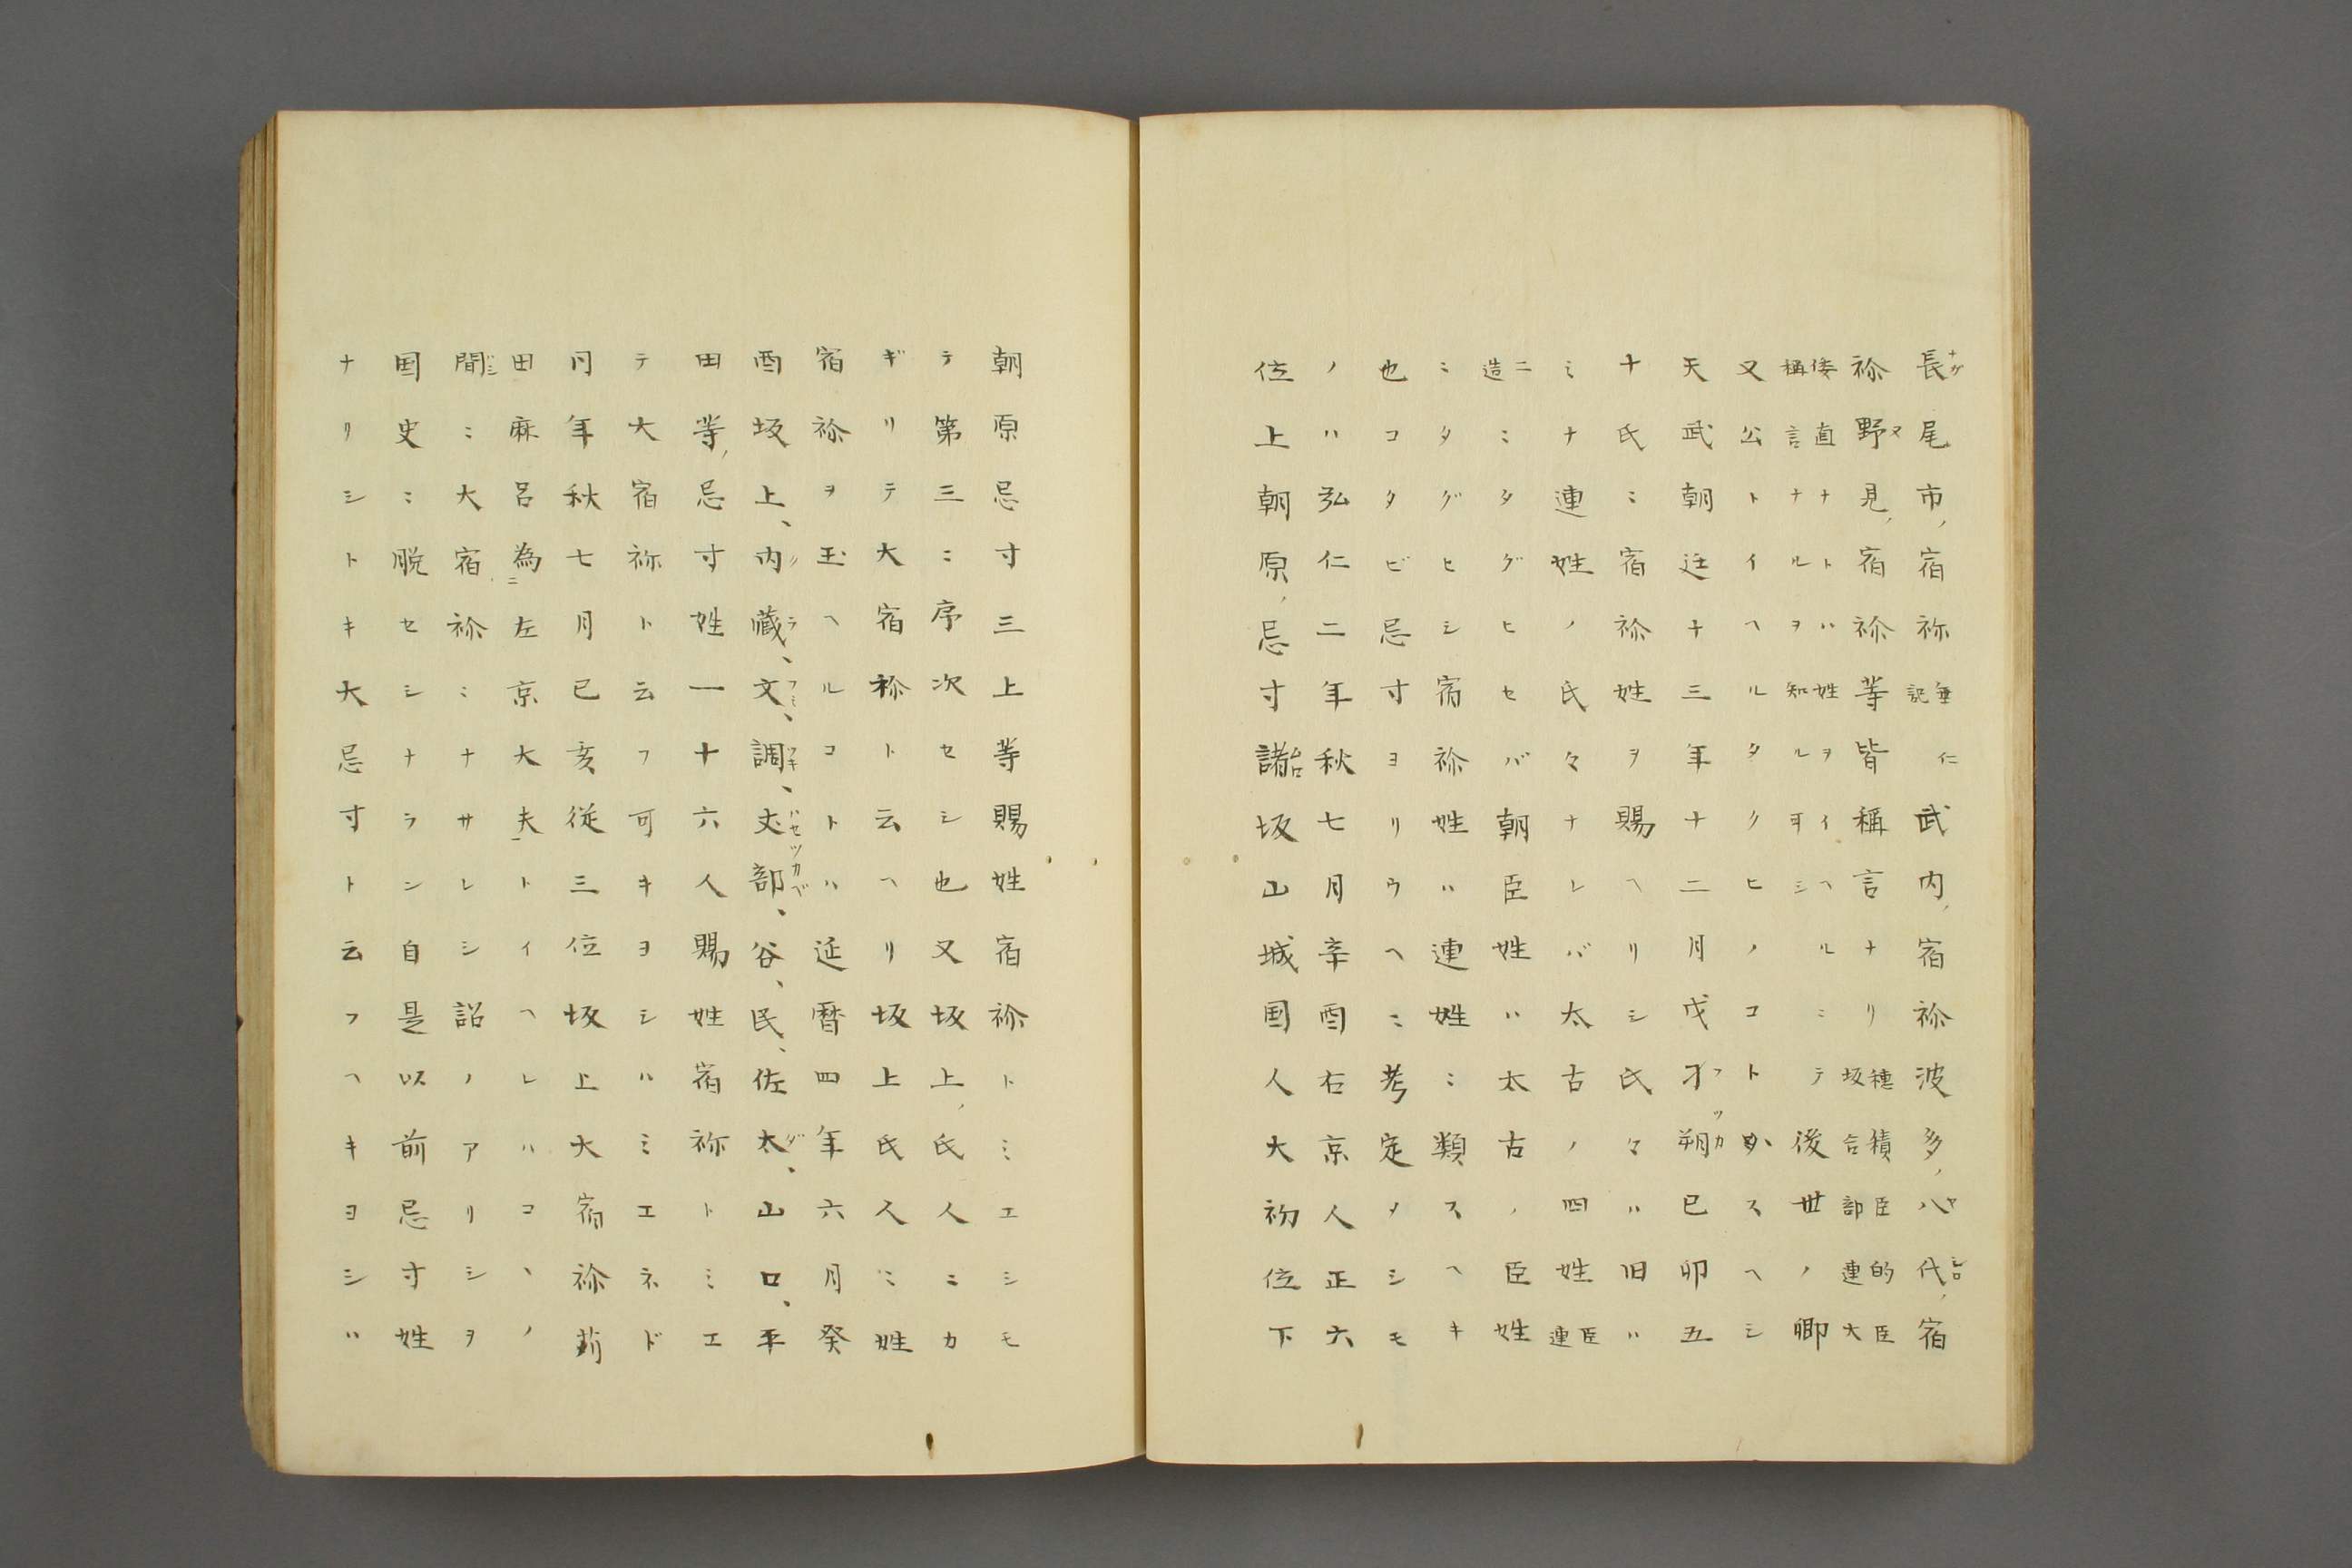 長尾市、宿祢垂仁記武内、宿祢波多、八代、宿
祢野見、宿祢等皆稱言ナリ穂積臣的臣坂合部連大
倭直ナトハ姓ヲイヘル稱言ナルヲ知ルヘシ ミテ後世ノ卿
又公トイヘルタクヒノコトカスヘシ
天武朝廷十三年十二月戊才朔己卯五
十氏ミ宿祢姓ヲ賜ヘリシ氏々ハ旧ハ
ミナ連姓ノ氏々ナレバ太古ノ四姓臣連
二造ミタグヒセバ朝臣姓ハ太古ノ臣姓
ミタグヒシ宿祢姓ハ連姓ミ類スヘキ
也コタビ忌寸ヨリウヘミ考定メシモ
ノハ弘仁二年秋七月辛酉右京人正六
位上朝原、忌寸諸坂山城国人大初位下
朝原忌寸三上等賜姓宿祢トミエシモ
テ第三ミ序次セシ也又坂上、氏人ニカ
ギリテ大宿祢ト云ヘリ坂上氏人ミ姓
宿祢ヲ玉ヘルコトハ延暦四年六月癸
酉坂上、内蔵、文、調、丈部、谷、民、佐太、山口、平
田等、忌寸姓一十六人賜姓宿祢トミエ
テ大宿祢ト云フ可キヨシハミエネド
同年秋七月己亥従三位坂上大宿祢苅
田麻呂為左京大夫トイヘレハコヽノ
間ミ大宿祢ミナサレシ詔ノアリシヲ
国史ミ脱セシナラン自是以前忌寸姓
ナリシトキ大忌寸ト云フヘキヨシハ